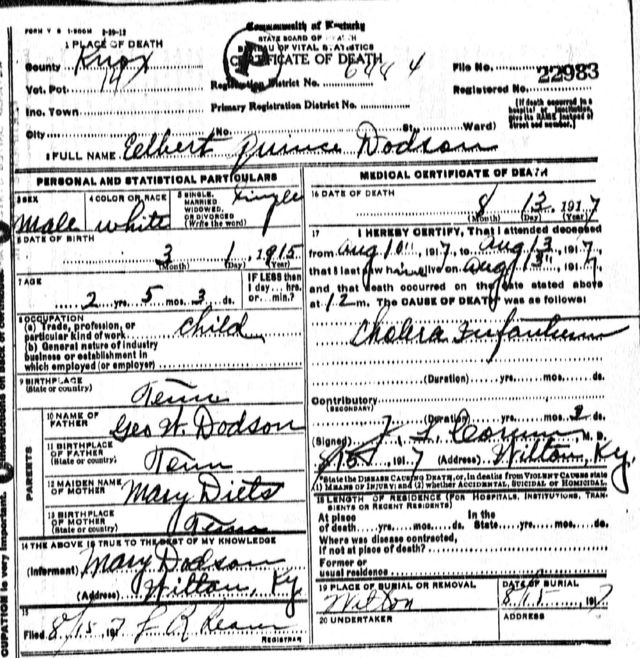 FORM V S 1-500M 3-29-13
Commonwealth of Kentucky
STATE BOARD OF HEALTH
BUREAU OF VITAL STATISTICS
CERTIFICATE OF DEATH
1 PLACE OF DEATH
County Knox
Vot. Pct. 14
Registration District No. 6444
Inc. Town
Primary Registration District No.
City No. St. Ward)
File No. 22983
Registered No.
[If death occurred in a hospital or institution, give its NAME instead of street and number.]
2 FULL NAME Eelbert Quince Dodson
PERSONAL AND STATISTICAL PARTICULARS
3 SEX male
4 COLOR OR RACE white
5 SINGLE, MARRIED WIDOWED, OR DIVORCED (Write the word) Single
6 DATE OF BIRTH
3 1 1915
(Month) (Day) (Year)
7 AGE
2 yrs. 5 mos. 3 ds.
IF LESS than 1 day....hrs. or....min.?
8 OCCUPATION
(a) Trade, profession, or particular kind of work child
(b) General nature of industry business or establishment in which employed (or employer)
9 BIRTHPLACE
(State or country) Tenn
PARENTS
10 NAME OF FATHER Geo W. Dodson
11 BIRTHPLACE OF FATHER
(State or country) Tenn
12 MAIDEN NAME OF MOTHER Mary Diets
13 BIRTHPLACE OF MOTHER
(State or country) Tenn
14 THE ABOVE IS TRUE TO THE BEST OF MY KNOWLEDGE
(Informant) Mary Dodson
(Address) Wilton, Ky
15
Filed 8/15 1917
REGISTRAR
MEDICAL CERTIFICATE OF DEATH
16 DATE OF DEATH
8 13 1917
(Month) (Day) (Year)
17 I HEREBY CERTIFY, That I attended deceased
from Aug 10", 1917, to Aug 13, 1917,
that I last saw him alive on Aug 13", 1917,
and that death occurred on the date stated above
at 12 m. The CAUSE OF DEATH was as follows:
Cholera Infantum
(Duration) yrs. mos. ds.
Contributory
(SECONDARY)
(Duration) yrs. mos. 2 ds.
(Signed) M. D.
8/15, 1917 (Address) Wilton, Ky.
*State the DISEASE CAUSING DEATH, or, in deaths from VIOLENT CAUSES state
1) MEANS OF INJURY; and (2) whether ACCIDENTAL, SUICIDAL or HOMICIDAL
18 LENGTH OF RESIDENCE (FOR HOSPITALS, INSTITUTIONS, TRANSIENTS OR RECENT RESIDENTS)
At place of death....yrs....mos....ds. In the State....yrs....mos....ds.
Where was disease contracted,
if not at place of death?
Former or
usual residence
19 PLACE OF BURIAL OR REMOVAL
Wilton
DATE OF BURIAL
8/15, 1917
20 UNDERTAKER
ADDRESS